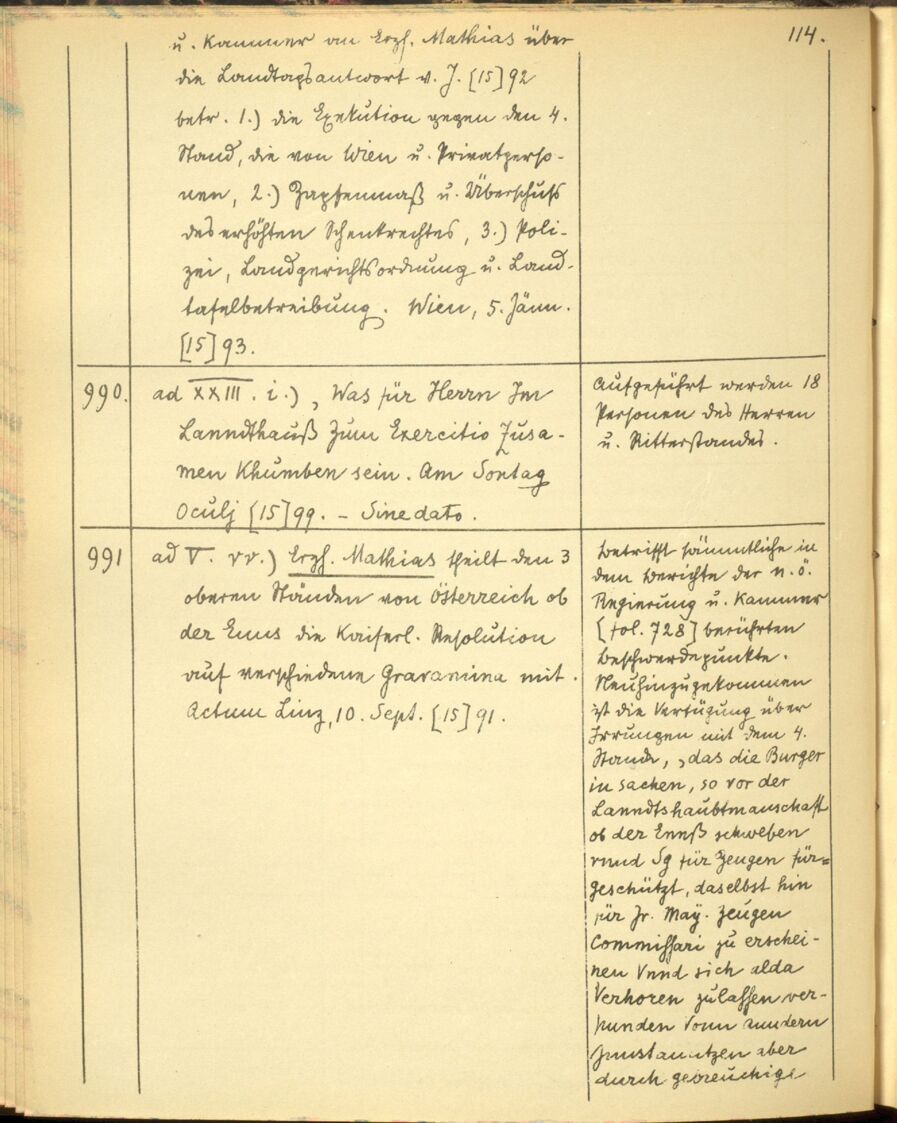 114.
u. Kammer an Erzh. Mathias über
die Landtagsantwort v. J. [15]92
betr. 1.) die Exekution gegen den 4.
Stand, die von Wien u. Privatperso-
nen, 2.) Zapfenmaß u. Überschuß
des erhöhten Schenkrechtes, 3.) Poli-
zei, Landgerichtsordnung u. Land-
tafelbetreibung. Wien, 5. Jänn.
[15]93.
990. ad XXIII. i.) „Was für Herrn Im
Lanndthauß Zum Exercitio Zusa-
men Khumben sein. Am Sontag
Oculj [15]99. – Sine dato.
Aufgeführt werden 18
Personen des Herren
u. Ritterstandes.
991 ad V. vv.) Erzh. Mathias theilt den 3
oberen Ständen von Österreich ob
der Enns die Kaiserl. Resolution
auf verschiedene Gravamina mit.
Actum Linz, 10. Sept. [15]91.
Betrifft sämmtliche in
dem Berichte der n. ö.
Regierung u. Kammer
[fol. 728] berührten
Beschwerdepunkte.
Neuhinzugekommen
ist die Verfügung über
Irrungen mit dem 4.
Stande, „das die Burger
in sachen, so vor der
Lanndtshaubtmanschafft
ob der Ennß schweben
vnnd Sy für Zeugen für=
geschützt, daselbst hin
für Ir. May. Zeugen
Commissari zu erschei-
nen Vnnd sich alda
Verhoren zulassen ver-
punden Vonn anndern
Innstanntzen aber
durch